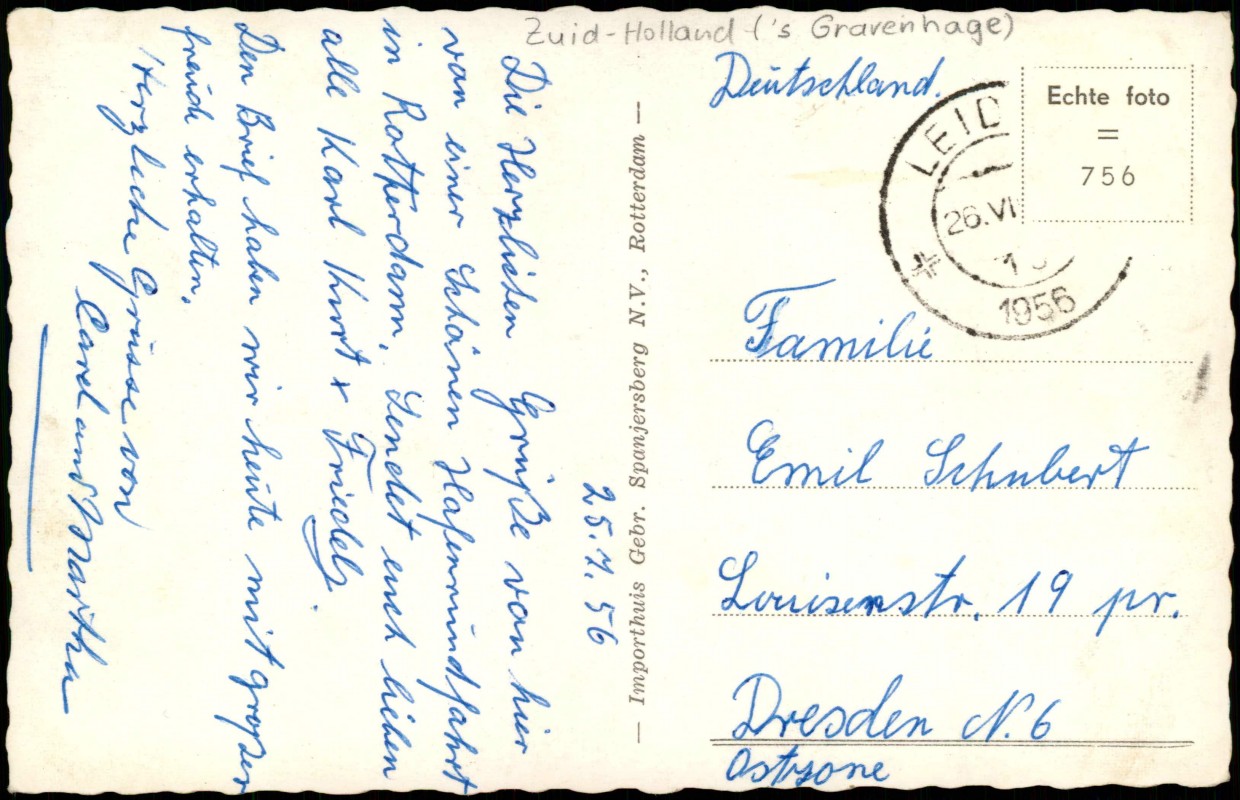 Zuid-Holland ('s Gravenhage)
25.7.56
Die Herzlisten Grüße von hier
von einer Schönen Hafenrundfahrt
in Rotterdam. Sendet euch lieben
alle Karl Kurt + Friedel.
Den Brief haben wir heute mit großer
freude erhalten.
Herzliche Grüsse von
Carel und Martha
— Importhuis Gebr. Spanjersberg N.V., Rotterdam —
Deutschland.
LEID
26.VI
1956
Echte foto
=
756
Familie
Emil Schubert
Louisenstr. 19 pr.
Dresden N.6
Ostzone